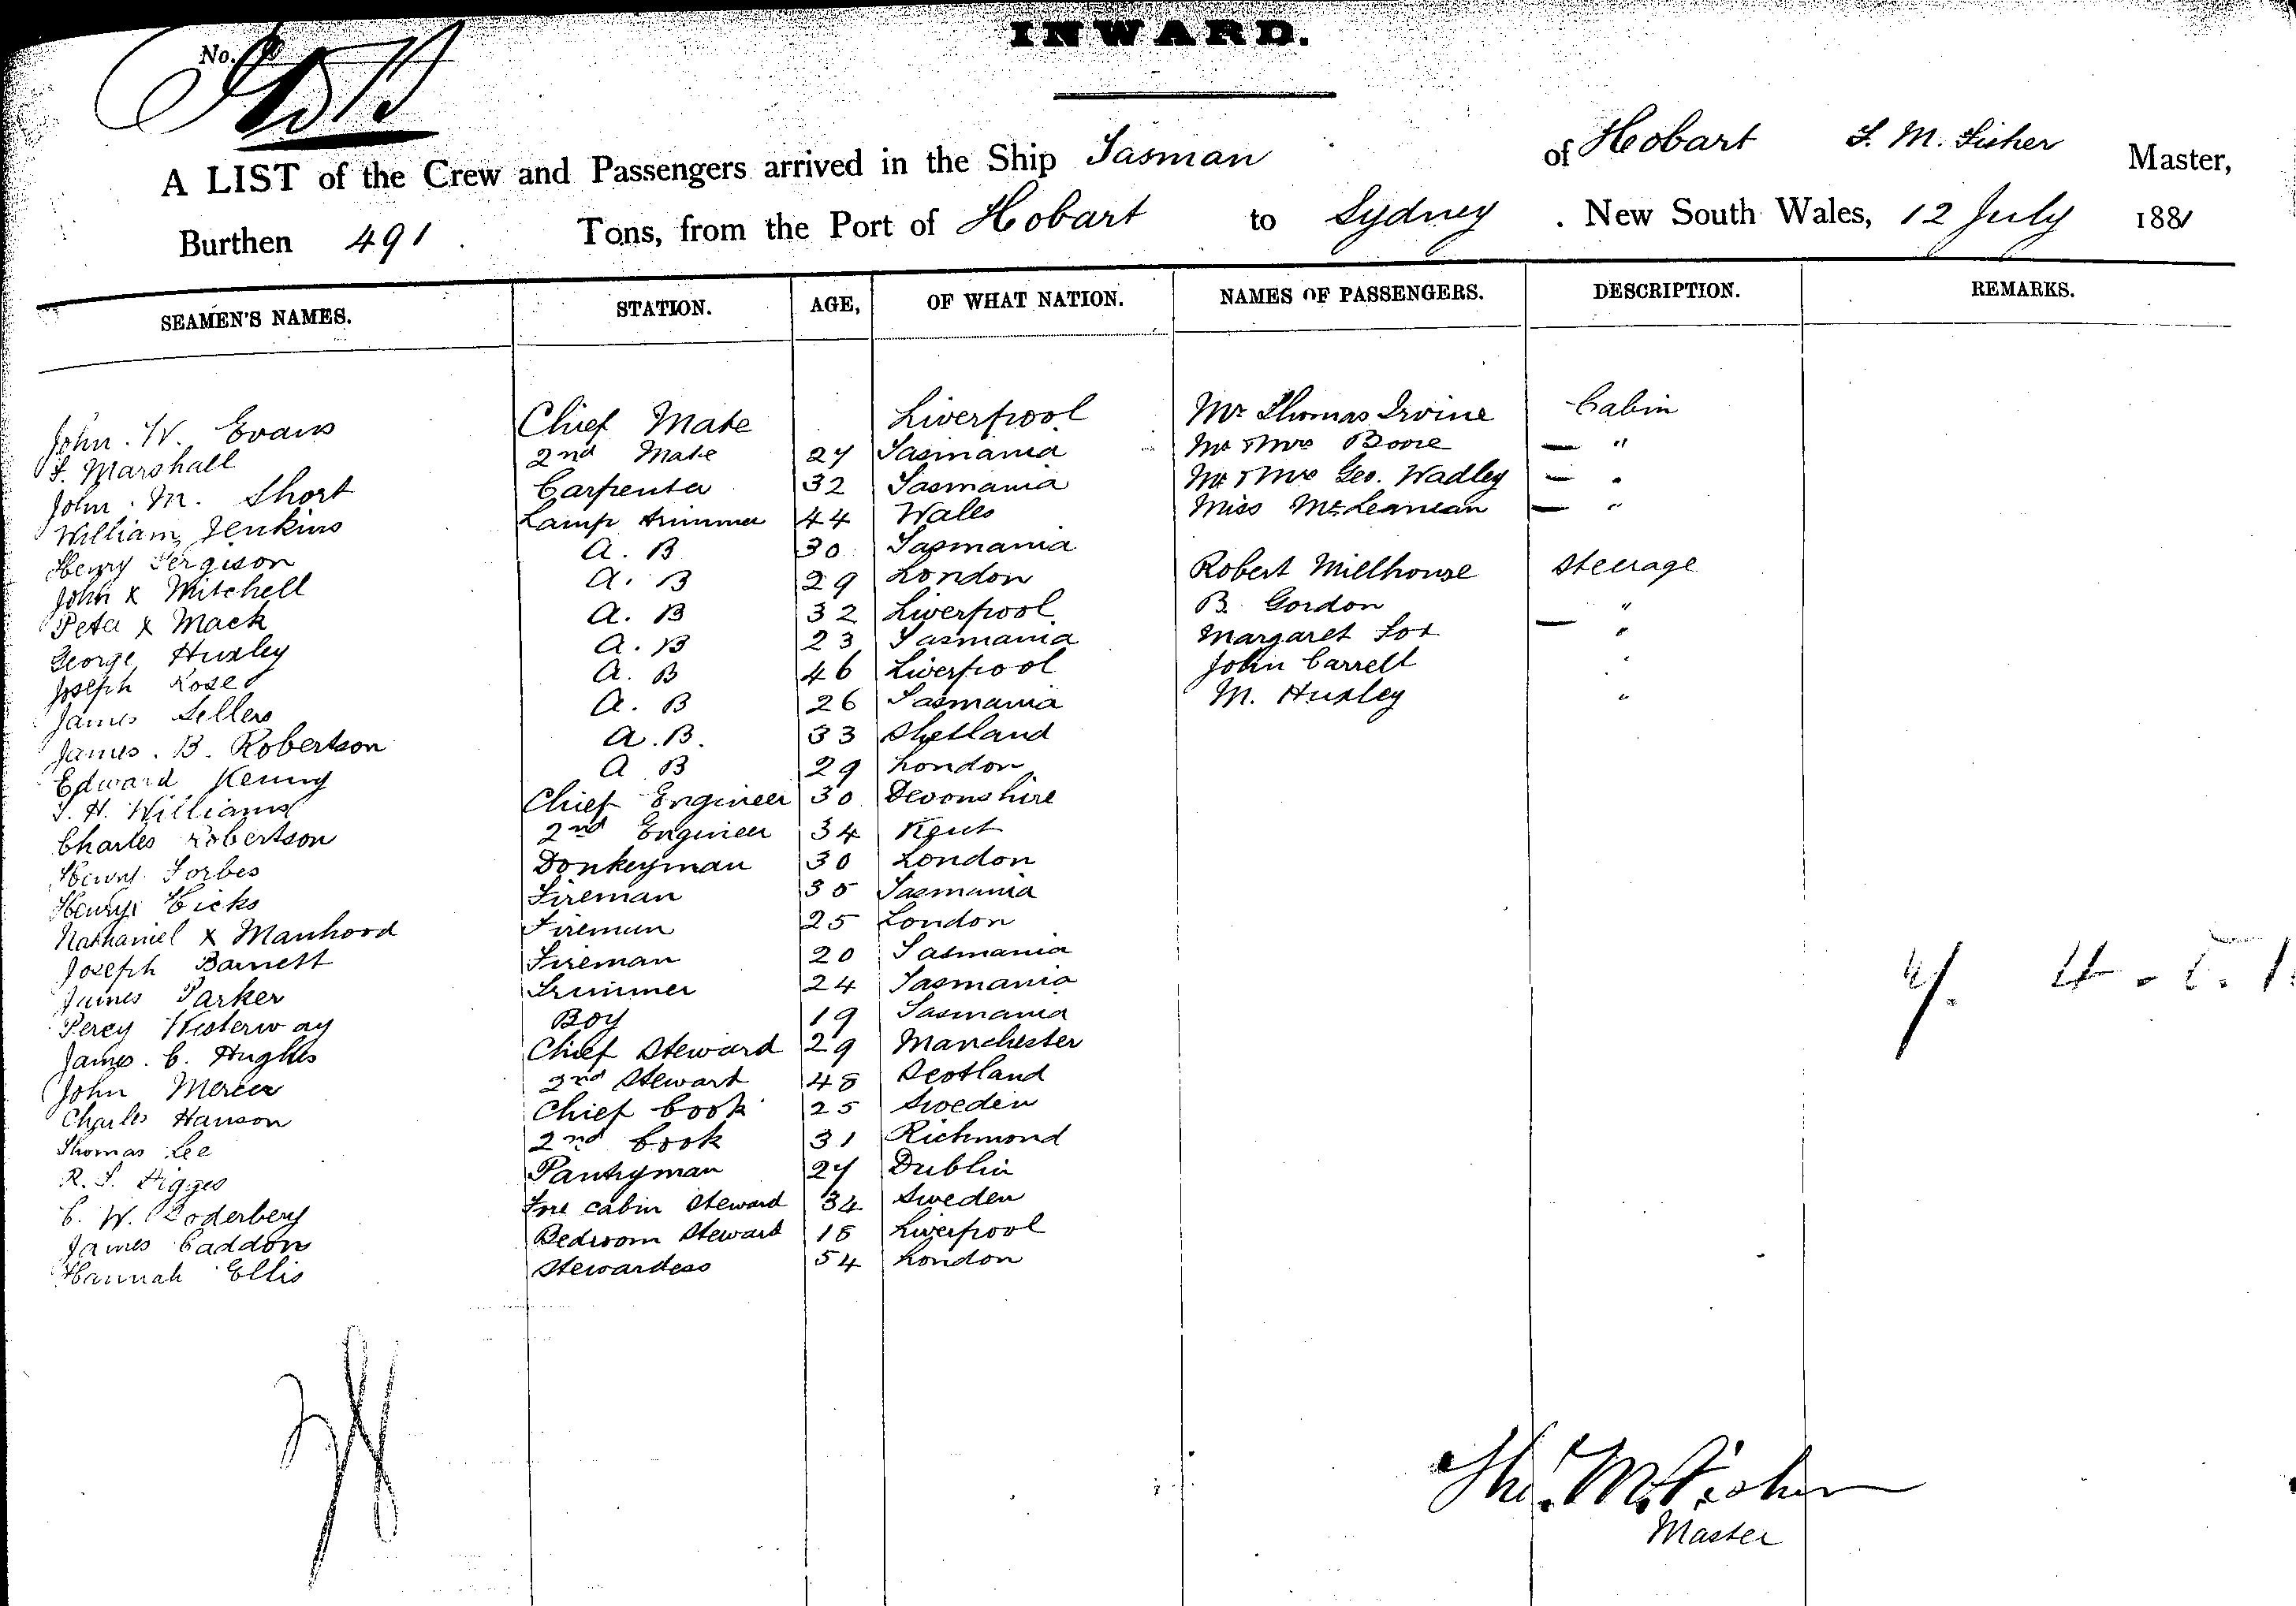 INWARD.
No.
A LIST of the Crew and Passengers arrived in the Ship Tasman of Hobart T. M. Fisher Master,
Burthen 491 Tons, from the Port of Hobart to Sydney . New South Wales, 12 July 1881
SEAMEN'S NAMES. STATION. AGE, OF WHAT NATION. NAMES OF PASSENGERS. DESCRIPTION. REMARKS.
John . W. Evans Chief Mate Liverpool Mr Thomas Irvine Cabin
F. Marshall 2nd Mate 27 Tasmania Mr & Mrs Boore — "
John . M. Short Carpenter 32 Tasmania Mr & Mrs Geo. Wadley — "
William Jenkins Lamp trimmer 44 Wales Miss McLennan — "
Henry Fergison A. B 30 Tasmania
John x Mitchell A. B 29 London Robert Millhouse Steerage
Peter x Mack A. B 32 Liverpool B. Gordon "
George Huxley A. B 23 Tasmania Margaret Fox — "
Joseph Rose A. B 46 Liverpool John Carrell "
James Sellers A. B 26 Tasmania M. Huxley "
James . B. Robertson A. B. 33 Shetland
Edward Kenny A B 29 London
T. H. Williams Chief Engineer 30 Devonshire
Charles Robertson 2nd Engineer 34 Kent
Henry Forbes Donkeyman 30 London
Henry Hicks Fireman 35 Tasmania
Nathaniel x Manhood Fireman 25 London
Joseph Barnett Fireman 20 Tasmania
James Parker Trimmer 24 Tasmania
Percy Westerway Boy 19 Tasmania
James . C. Hughes Chief Steward 29 Manchester
John Mercer 2nd Stewart 48 Scotland
Charles Hanson Chief Cook 25 Sweden
Thomas Lee 2nd Cook 31 Richmond
R. S. Higges Pantryman 27 Dublin
C. W. Soderberg Fore cabin Steward 34 Sweden
James Caddon Bedroom Steward 18 Liverpool
Hannah Ellis Stewardess 54 London
Tho. M. Fisher
Master